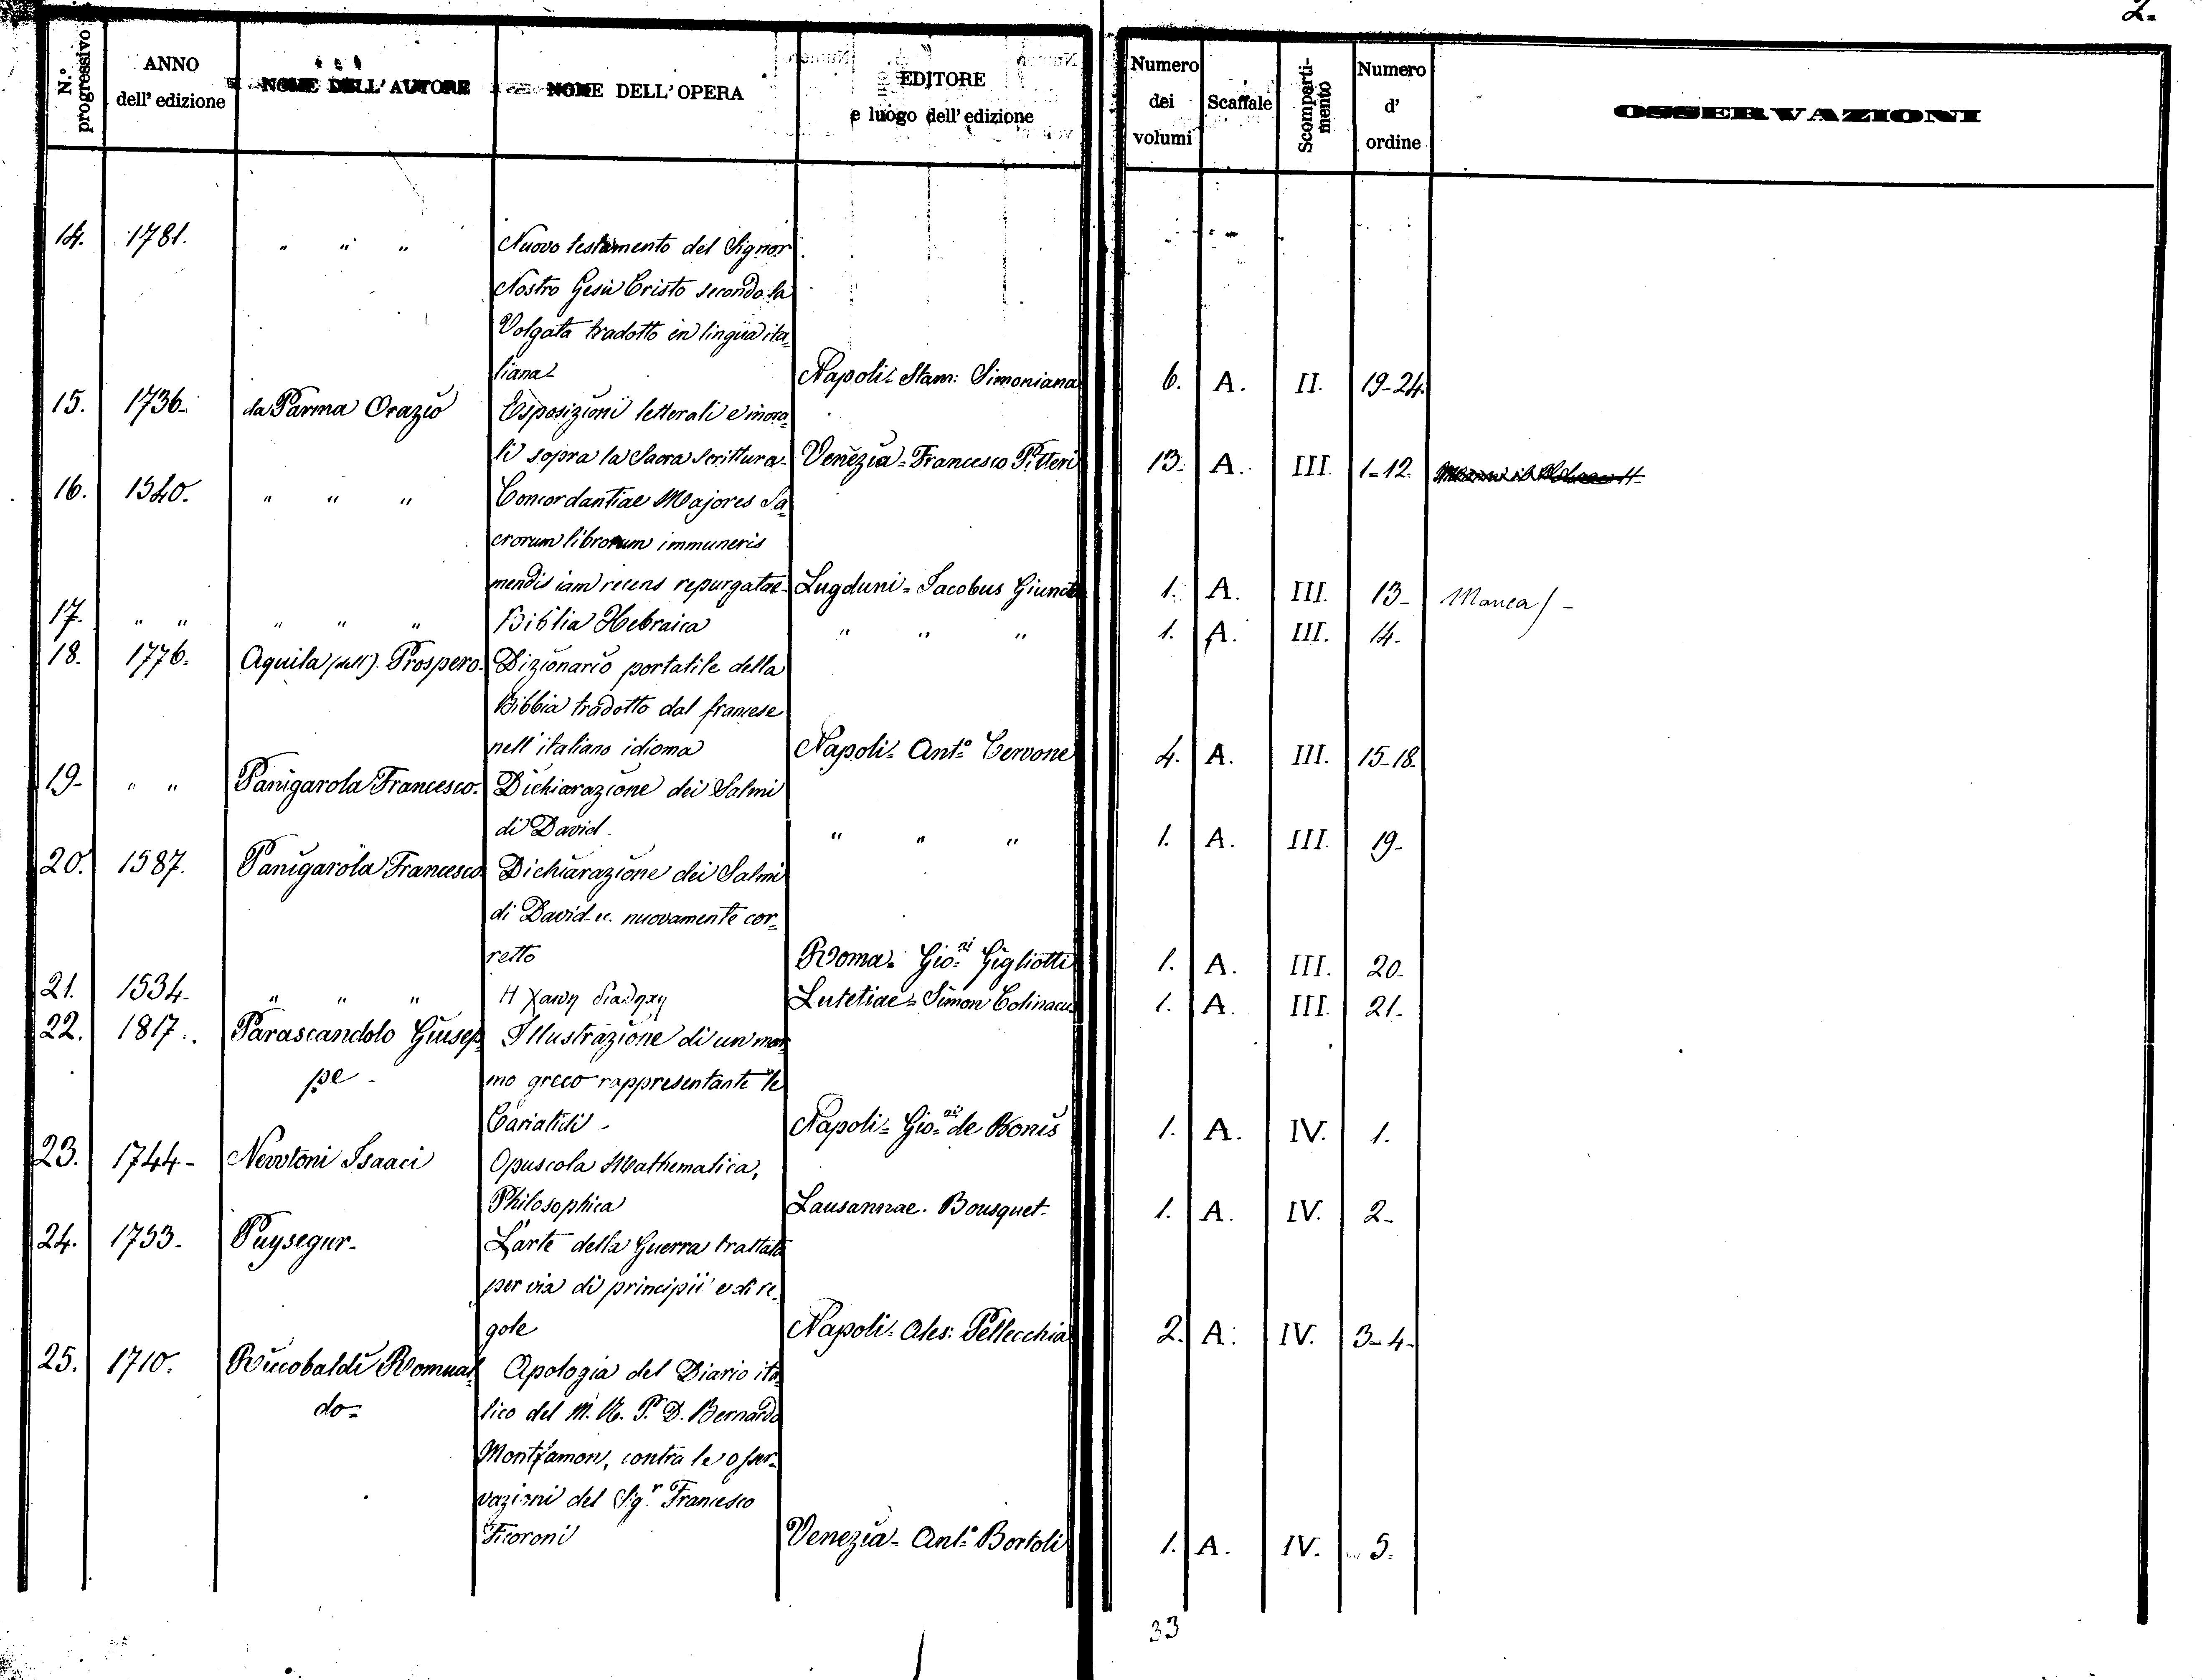 2.
N.° progressivo | ANNO dell' edizione | NOME DELL' AUTORE | NOME DELL' OPERA | EDITORE e luogo dell' edizione | Numero dei volumi | Scaffale | Scomparti-mento | Numero d' ordine | OSSERVAZIONI
14. 1781. " " " Nuovo testamento del Signor
Nostro Gesù Cristo secondo la
Volgata tradotto in lingua ita-
liana- Napoli- Stam: Simoniana 6. A. II. 19-24.
15. 1736- da Parma Orazio Esposizioni letterali e mora-
li sopra la Sacra Scrittura- Venezia= Francesco Pitteri 13. A. III. 1-12.
16. 1540. " " " Concordantiae Majores Sa-
crorum librorum immuneris
mendis iam recens repurgatae- Lugduni= Jacobus Giuncti 1. A. III. 13- Manca/-
17. " " " " " Biblia Hebraica " " " 1. A. III. 14.
18. 1776. Aquila (dell'). Prospero- Dizionario portatile della
Bibbia tradotto dal francese
nell'italiano idioma Napoli= Ant.° Cervone 4. A. III. 15-18.
19- " " Panigarola Francesco. Dichiarazione dei Salmi
di David- " " " 1. A. III. 19-
20. 1587. Panigarola Francesco Dichiarazione dei Salmi
di David ec. nuovamente cor-
retto Roma- Gio:ni Gigliotti 1. A. III. 20-
21. 1534- " " " Η χαινη διαθηχη Lutetiae= Simon Colinaeus 1. A. III. 21-
22. 1817. Parascandolo Giusep- Illustrazione di un mar-
pe- mo greco rappresentante le
Cariatidi- Napoli= Gio:ni de Bonis 1. A. IV. 1.
23. 1744- Nevvtoni Isaaci Opuscola Mathematica,
Philosophica Lausannae. Bousquet- 1. A. IV. 2-
24. 1753- Puysegur- L'arte della Guerra trattata
per via di principii e di re-
gole Napoli- Ales: Pellecchia 2. A. IV. 3-4-
25. 1710. Riccobaldi Romual- Apologia del Diario ita-
do= lico del M. R. P. D. Bernardo
Montfamon, contra le osser-
vazioni del Sig.r Francesco
Ficoroni Venezia- Ant.° Bortoli 1. A. IV. 5.
33